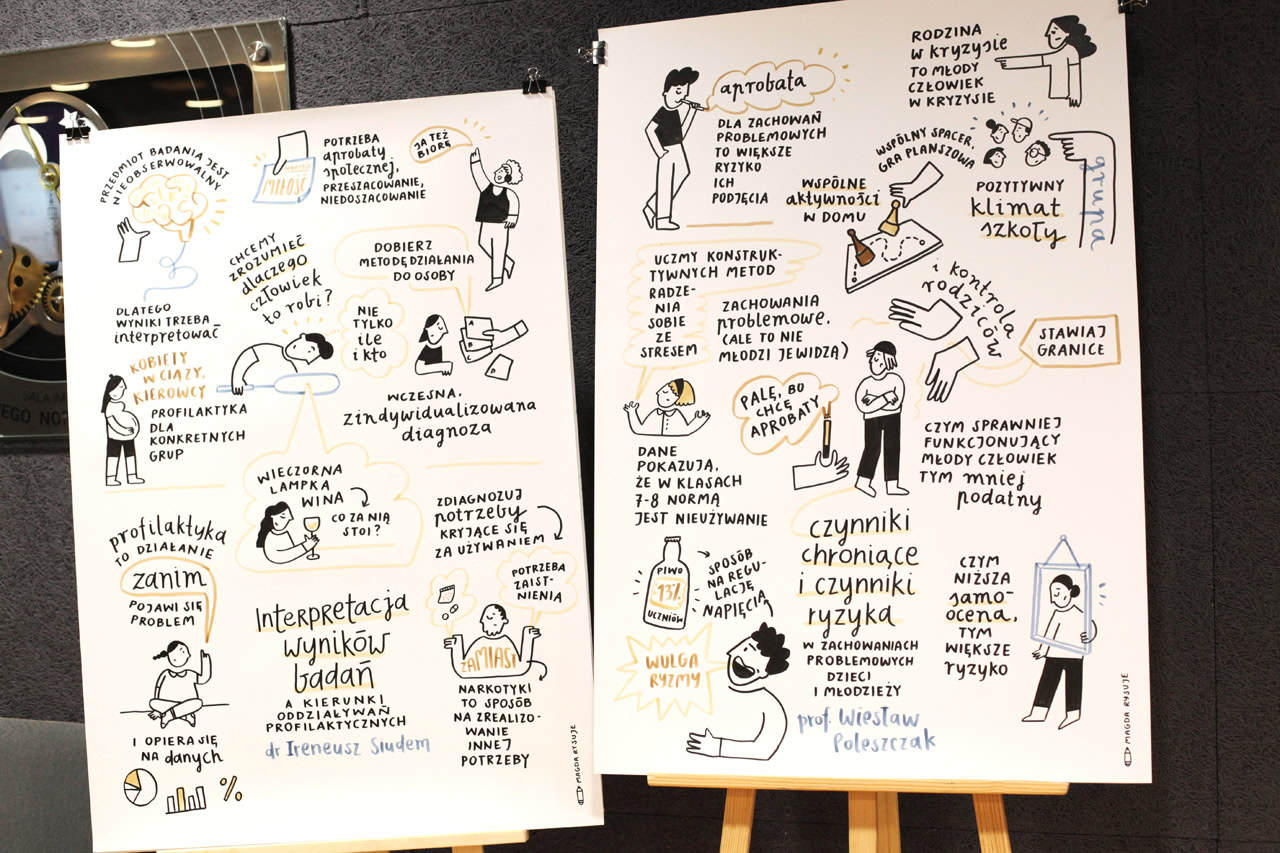 PRZEDMIOT BADANIA JEST
NIEOBSERWOWALNY
DLATEGO
WYNIKI TRZEBA
interpretować
POTRZEBA
aprobaty
społecznej,
PRZESZACOWANIE,
NIEDOSZACOWANIE
MIŁOŚĆ
JA TEŻ
BIORĘ
CHCEMY
ZROZUMIEĆ
dlaczego
człowiek
to robi?
DOBIERZ
METODĘ DZIAŁANIA
DO OSOBY
NIE
TYLKO
ile
i kto
KOBIETY
W CIĄŻY,
KIEROWCY
PROFILAKTYKA
DLA
KONKRETNYCH
GRUP
WCZESNA,
zindywidualizowana
diagnoza
WIECZORNA
LAMPKA
WINA
CO ZA NIĄ
STOI?
ZDIAGNOZUJ
potrzeby
KRYJĄCE SIĘ
ZA UŻYWANIEM
POTRZEBA
ZAIST-
NIENIA
ZAMIAST
NARKOTYKI
TO SPOSÓB
NA ZREALIZO-
WANIE
INNEJ
POTRZEBY
profilaktyka
TO DZIAŁANIE
zanim
POJAWI SIĘ
PROBLEM
I OPIERA SIĘ
NA danych
%
Interpretacja
wyników
badań
A KIERUNKI
ODDZIAŁYWAŃ
PROFILAKTYCZNYCH
dr Ireneusz Siudem
MAGDA RYSUJE
aprobata
DLA ZACHOWAŃ
PROBLEMOWYCH
TO WIĘKSZE
RYZYKO
ICH
PODJĘCIA
RODZINA
W KRYZYSIE
TO MŁODY
CZŁOWIEK
W KRYZYSIE
WSPÓLNY SPACER,
GRA PLANSZOWA
WSPÓLNE
aktywności
W DOMU
grupa
POZYTYWNY
klimat
szkoły
UCZMY KONSTRUK-
TYWNYCH METOD
RADZE-
NIA
SOBIE
ZE
STRESEM
ZACHOWANIA
problemowe.
(ALE TO NIE
MŁODZI JE WIDZĄ)
i kontrola
rodziców
STAWIAJ
GRANICE
PALĘ, BO
CHCĘ
APROBATY
DANE
POKAZUJĄ,
ŻE W KLASACH
7-8 NORMĄ
JEST NIEUŻYWANIE
CZYM SPRAWNIEJ
FUNKCJONUJĄCY
MŁODY CZŁOWIEK
TYM mniej
podatny
PIWO
13%
UCZNIÓW
SPOSÓB
NA REGU-
LACJĘ
NAPIĘCIA
WULGA
RYZMY
czynniki
chroniące
i czynniki
ryzyka
W ZACHOWANIACH
PROBLEMOWYCH
DZIECI
I MŁODZIEŻY
prof. Wiesław
Poleszczak
CZYM
NIŻSZA
samo-
ocena,
TYM
WIĘKSZE
ryzyko
MAGDA RYSUJE